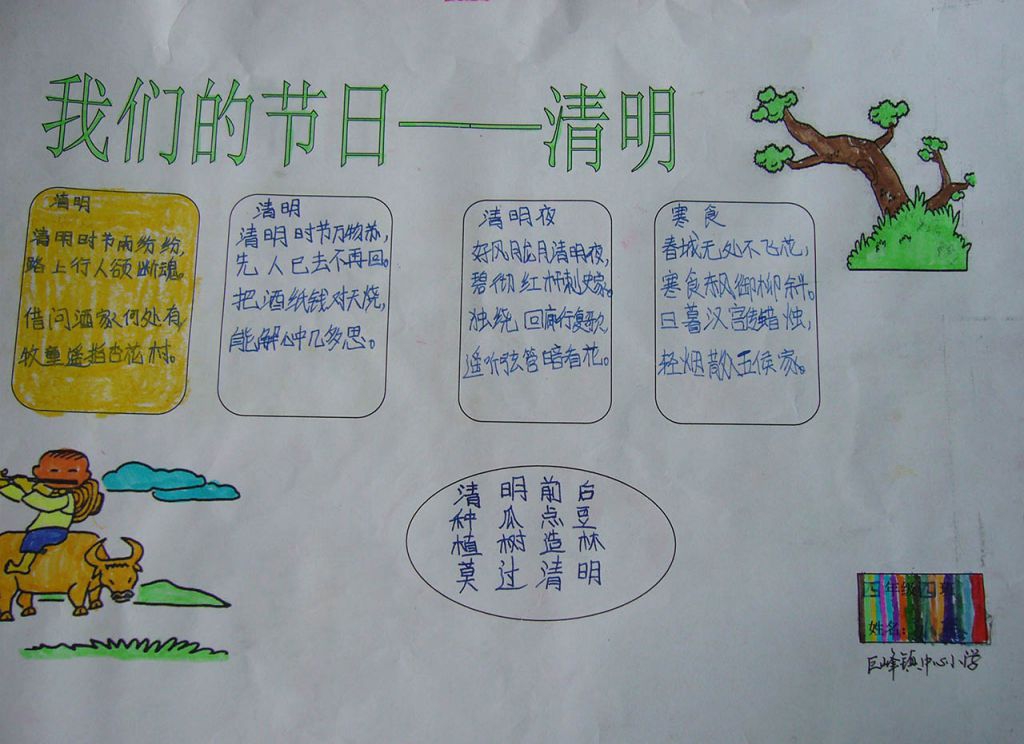 我们的节日——清明
清明
清明时节雨纷纷,
路上行人欲断魂。
借问酒家何处有,
牧童遥指杏花村。
清明
清明时节万物苏,
先人已去不再回。
把酒纸钱对天烧,
能解心中几多思。
清明夜
好风胧月清明夜,
碧彻红杆刺史家。
独绕回廊行复歇,
遥听弦管暗看花。
寒食
春城无处不飞花,
寒食东风御柳斜。
日暮汉宫传蜡烛,
轻烟散入五侯家。
清明前后
种瓜点豆
植树造林
莫过清明
四年级四班
姓名:
巨峰镇中心小学